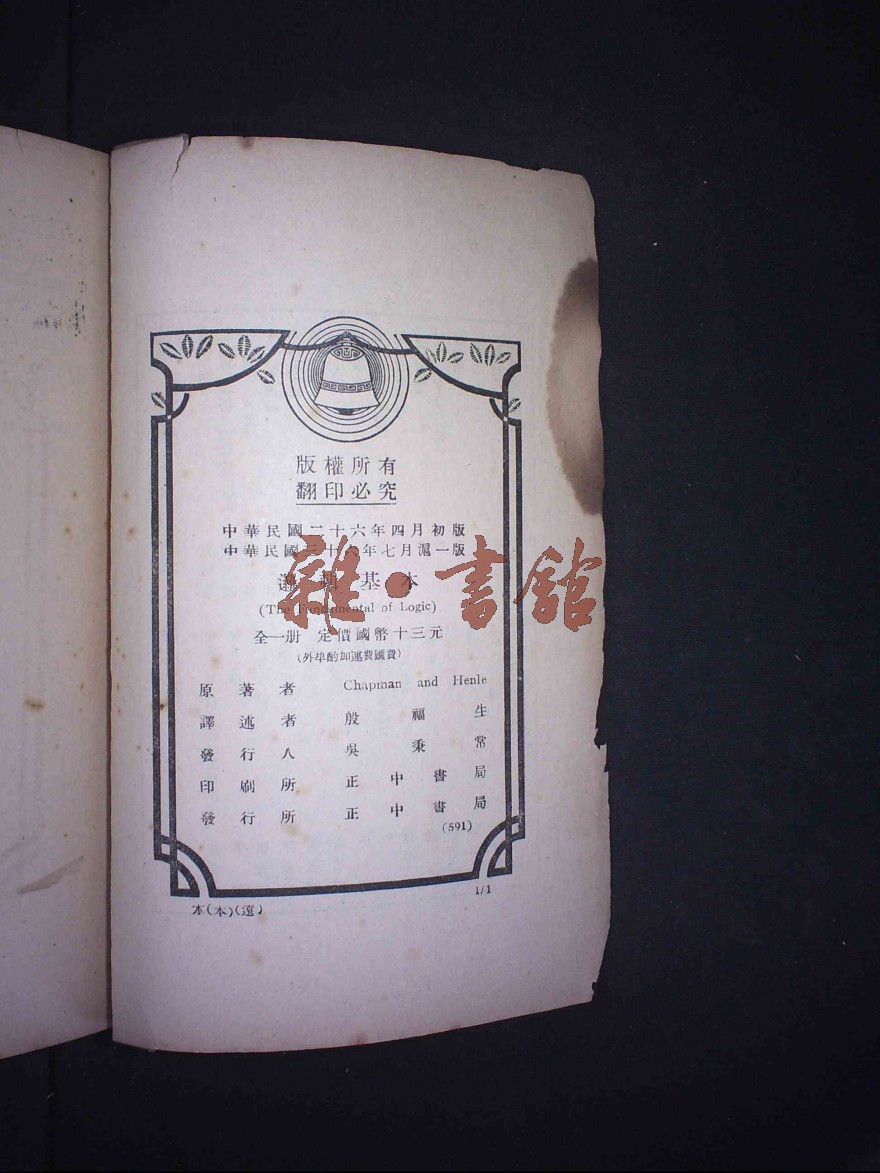 版權所有
翻印必究
中華民國二十六年四月初版
中華民國三十六年七月滬一版
邏輯基本
(The Fundamental of Logic)
全一册 定價國幣十三元
(外埠酌加運費匯費)
原著者 Chapman and Henle
譯述者 殷福生
發行人 吳秉常
印刷所 正中書局
發行所 正中書局
(591)
1/1
本(本)(遠)
雜·書館